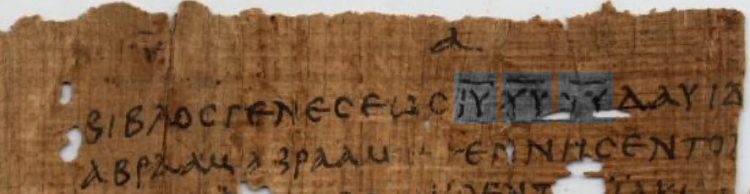 α
ΒΙΒΛΟϹΓΕΝΕϹΕΩϹ Ι̅Υ̅ Χ̅Υ̅ Υ̅Υ̅ ΔΑΥΙΔ
ΑΒΡΑΑΜ ΑΒΡΑΑΜ ΕΓΕΝΝΗϹΕΝ ΤΟ